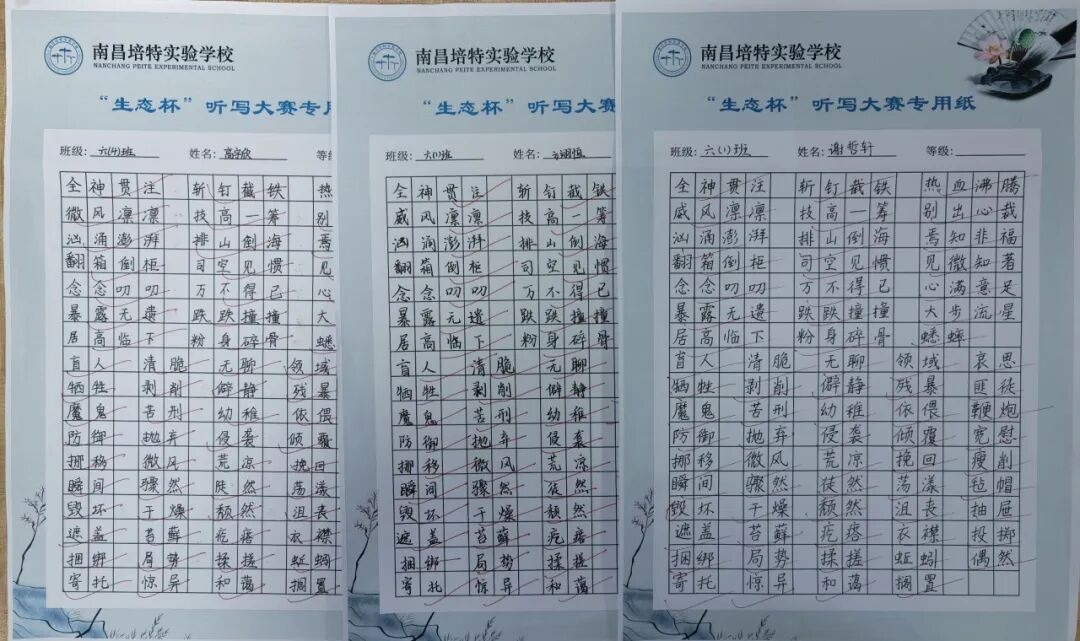 南昌培特实验学校
NANCHANG PEITE EXPERIMENTAL SCHOOL
“生态杯”听写大赛专用
班级: 六(4)班 姓名: 等
全神贯注 斩钉截铁 热
微风凛凛 技高一筹 别
汹涌澎湃 排山倒海 焉
翻箱倒柜 司空见惯 见
念念叨叨 万不得已 心
暴露无遗 跌跌撞撞 大
居高临下 粉身碎骨 蟋
盲人 清脆 无聊 领域
牺牲 剥削 僻静 残暴
魔鬼 苦刑 幼稚 依偎
防御 抛弃 侵袭 倾覆
挪移 微风 荒凉 挽回
瞬间 骤然 陡然 荡漾
毁坏 干燥 颓然 沮丧
遮盖 苔藓 疙瘩 衣襟
捆绑 局势 揉搓 蚯蚓
寄托 惊异 和蔼 搁置
南昌培特实验学校
NANCHANG PEITE EXPERIMENTAL SCHOOL
“生态杯”听写大赛
班级: 六(1)班 姓名:
全神贯注 斩钉截铁
威风凛凛 技高一筹
汹涌澎湃 排山倒海
翻箱倒柜 司空见惯
念念叨叨 万不得已
暴露无遗 跌跌撞撞
居高临下 粉身碎骨
盲人 清脆 无聊
牺牲 剥削 僻静
魔鬼 苦刑 幼稚
防御 抛弃 侵袭
挪移 微风 荒凉
瞬间 骤然 徒然
毁坏 干燥 颓然
遮盖 苔藓 疙瘩
捆绑 局势 揉搓
寄托 惊异 和蔼
南昌培特实验学校
NANCHANG PEITE EXPERIMENTAL SCHOOL
“生态杯”听写大赛专用纸
班级: 六(1)班 姓名: 谢哲轩 等级:
全神贯注 斩钉截铁 热血沸腾
威风凛凛 技高一筹 别出心裁
汹涌澎湃 排山倒海 焉知非福
翻箱倒柜 司空见惯 见微知著
念念叨叨 万不得已 心满意足
暴露无遗 跌跌撞撞 大步流星
居高临下 粉身碎骨 蟋蟀
盲人 清脆 无聊 领域 哀思
牺牲 剥削 僻静 残暴 匪徒
魔鬼 苦刑 幼稚 依偎 鞭炮
防御 抛弃 侵袭 倾覆 宽慰
挪移 微风 荒凉 挽回 瘦削
瞬间 骤然 徒然 荡漾 毡帽
毁坏 干燥 颓然 沮丧 抽屉
遮盖 苔藓 疙瘩 衣襟 投掷
捆绑 局势 揉搓 蚯蚓 偶然
寄托 惊异 和蔼 搁置